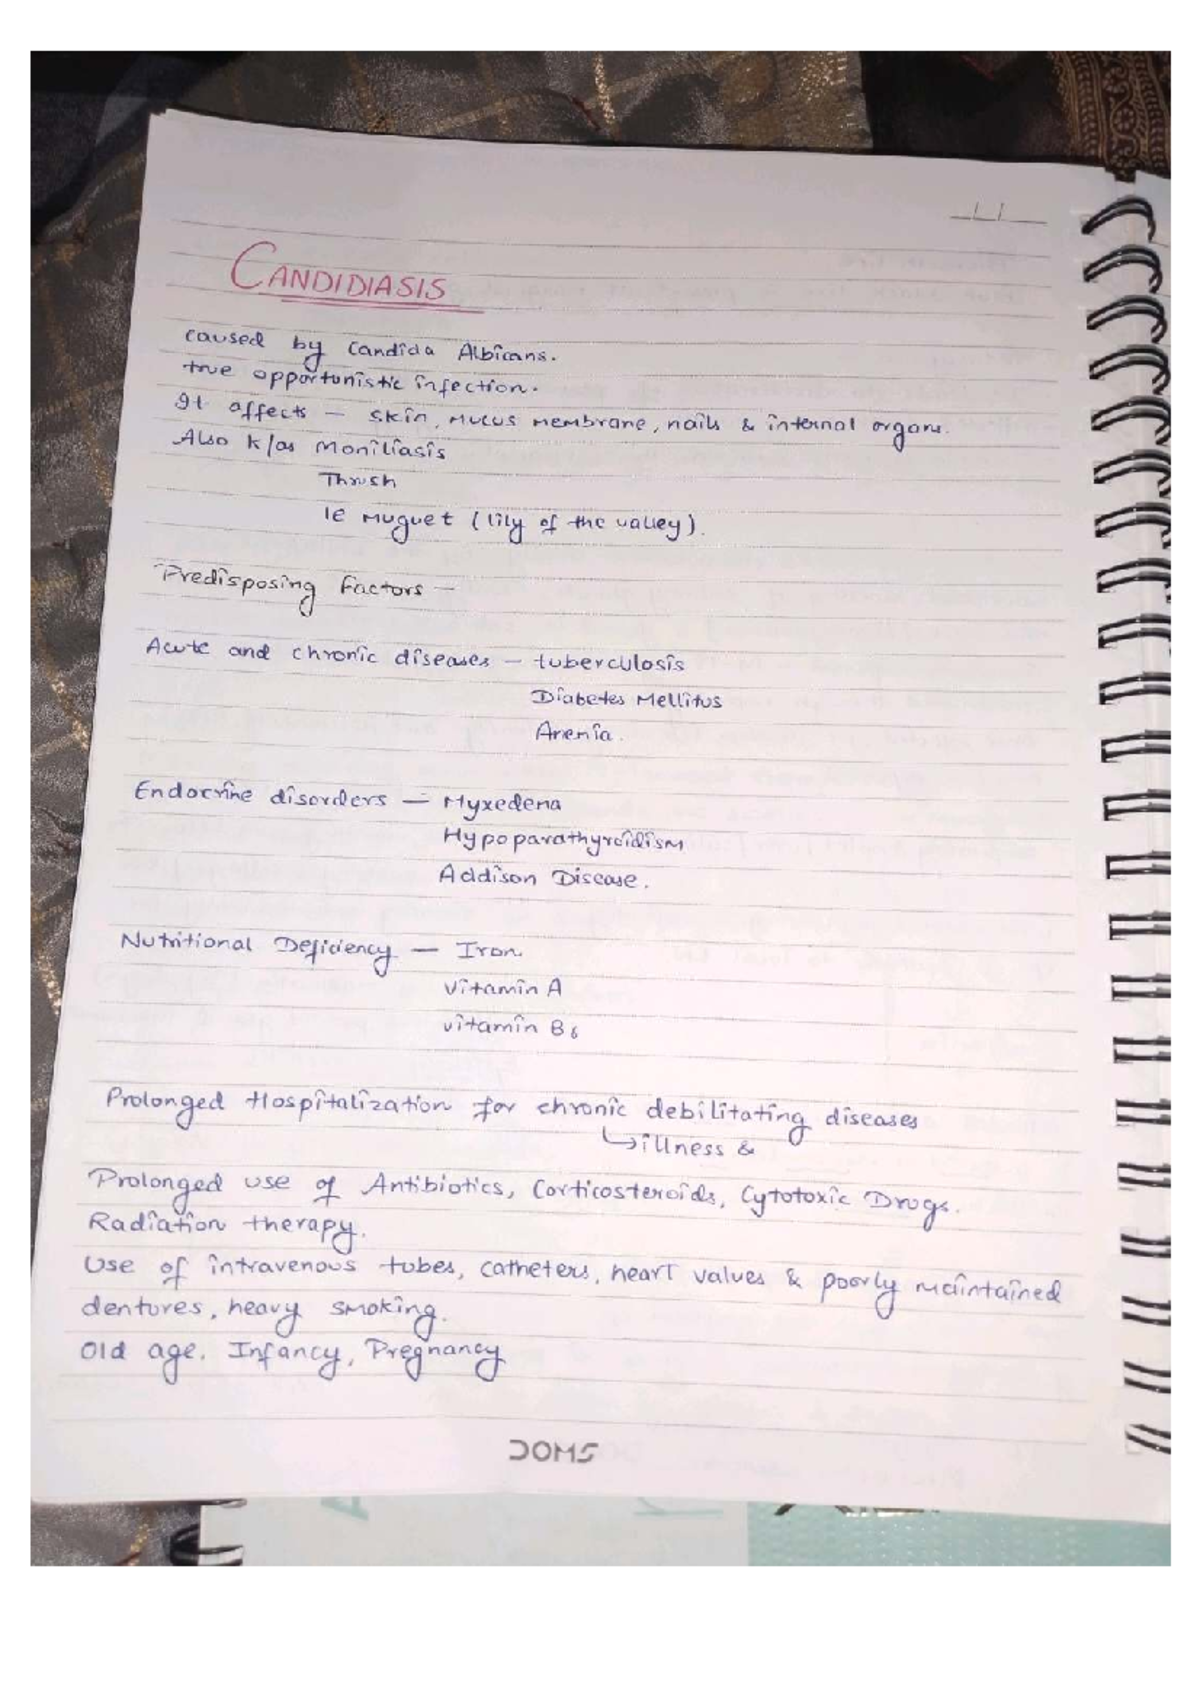 CANDIDIASIS
caused by Candida Albicans.
true opportunistic infection.
It affects — skin, Mucus Membrane, nails & internal organs.
Also k/as Moniliasis
Thrush
le Muguet (lily of the valley).
Predisposing Factors —
Acute and chronic diseases — tuberculosis
Diabetes Mellitus
Anemia.
Endocrine disorders — Myxedema
Hypoparathyroidism
Addison Disease.
Nutritional Deficiency — Iron
Vitamin A
vitamin B6
Prolonged Hospitalization for chronic debilitating diseases
↳ illness &
Prolonged use of Antibiotics, Corticosteroids, Cytotoxic Drugs.
Radiation therapy.
Use of intravenous tubes, catheters, heart valves & poorly maintained
dentures, heavy smoking.
Old age. Infancy, Pregnancy
DOMS